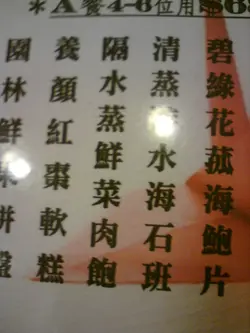 *A餐4-6位用$68
碧綠花菰海鮑片
清蒸水海石班
隔水蒸鮮菜肉飽
養顏紅棗軟糕
園林鮮果拼盤